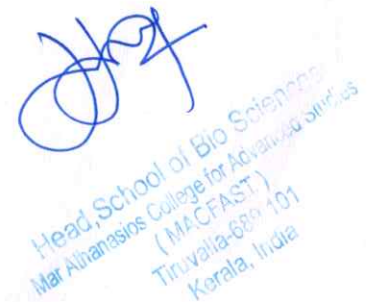 Head, School of Bio Sciences
Mar Athanasios College for Advanced Studies
(MACFAST)
Tiruvalla-689 101
Kerala, India